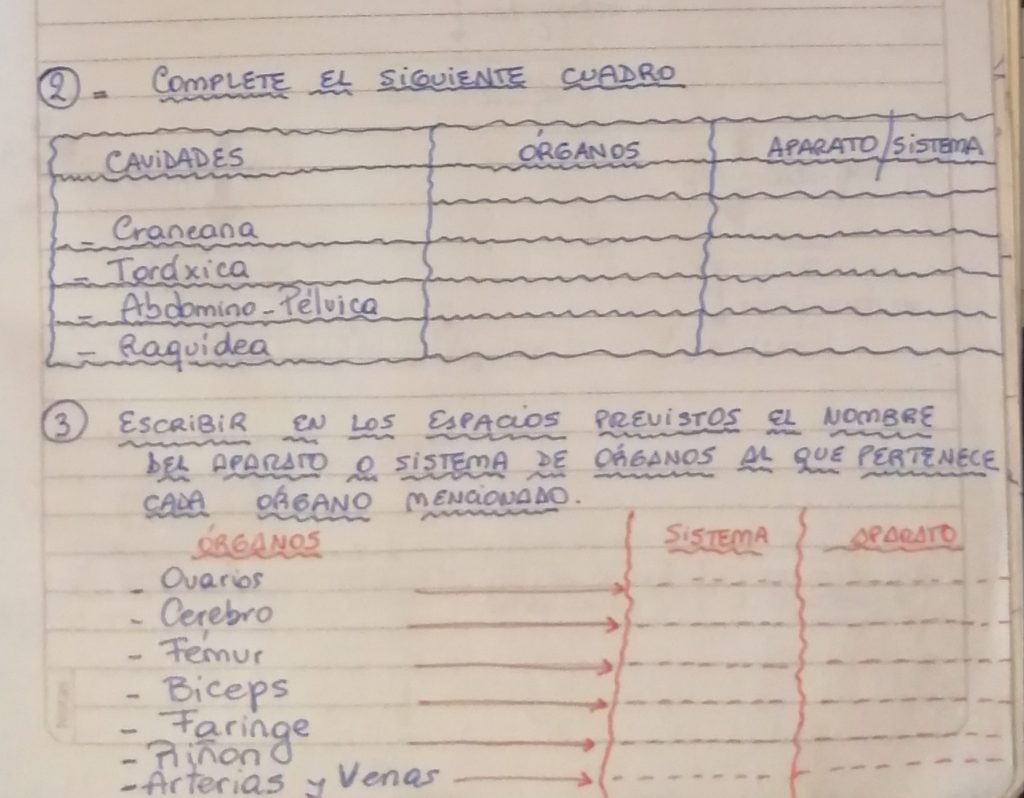 ② = COMPLETE EL SIGUIENTE CUADRO
CAVIDADES ÓRGANOS APARATO/SISTEMA
- Craneana
- Toráxica
- Abdomino-Pélvica
- Raquídea
③ ESCRIBIR EN LOS ESPACIOS PREVISTOS EL NOMBRE
DEL APARATO O SISTEMA DE ÓRGANOS AL QUE PERTENECE
CADA ÓRGANO MENCIONADO.
ÓRGANOS SISTEMA APARATO
- Ovarios
- Cerebro
- Fémur
- Biceps
- Faringe
- Riñon
- Arterias y Venas